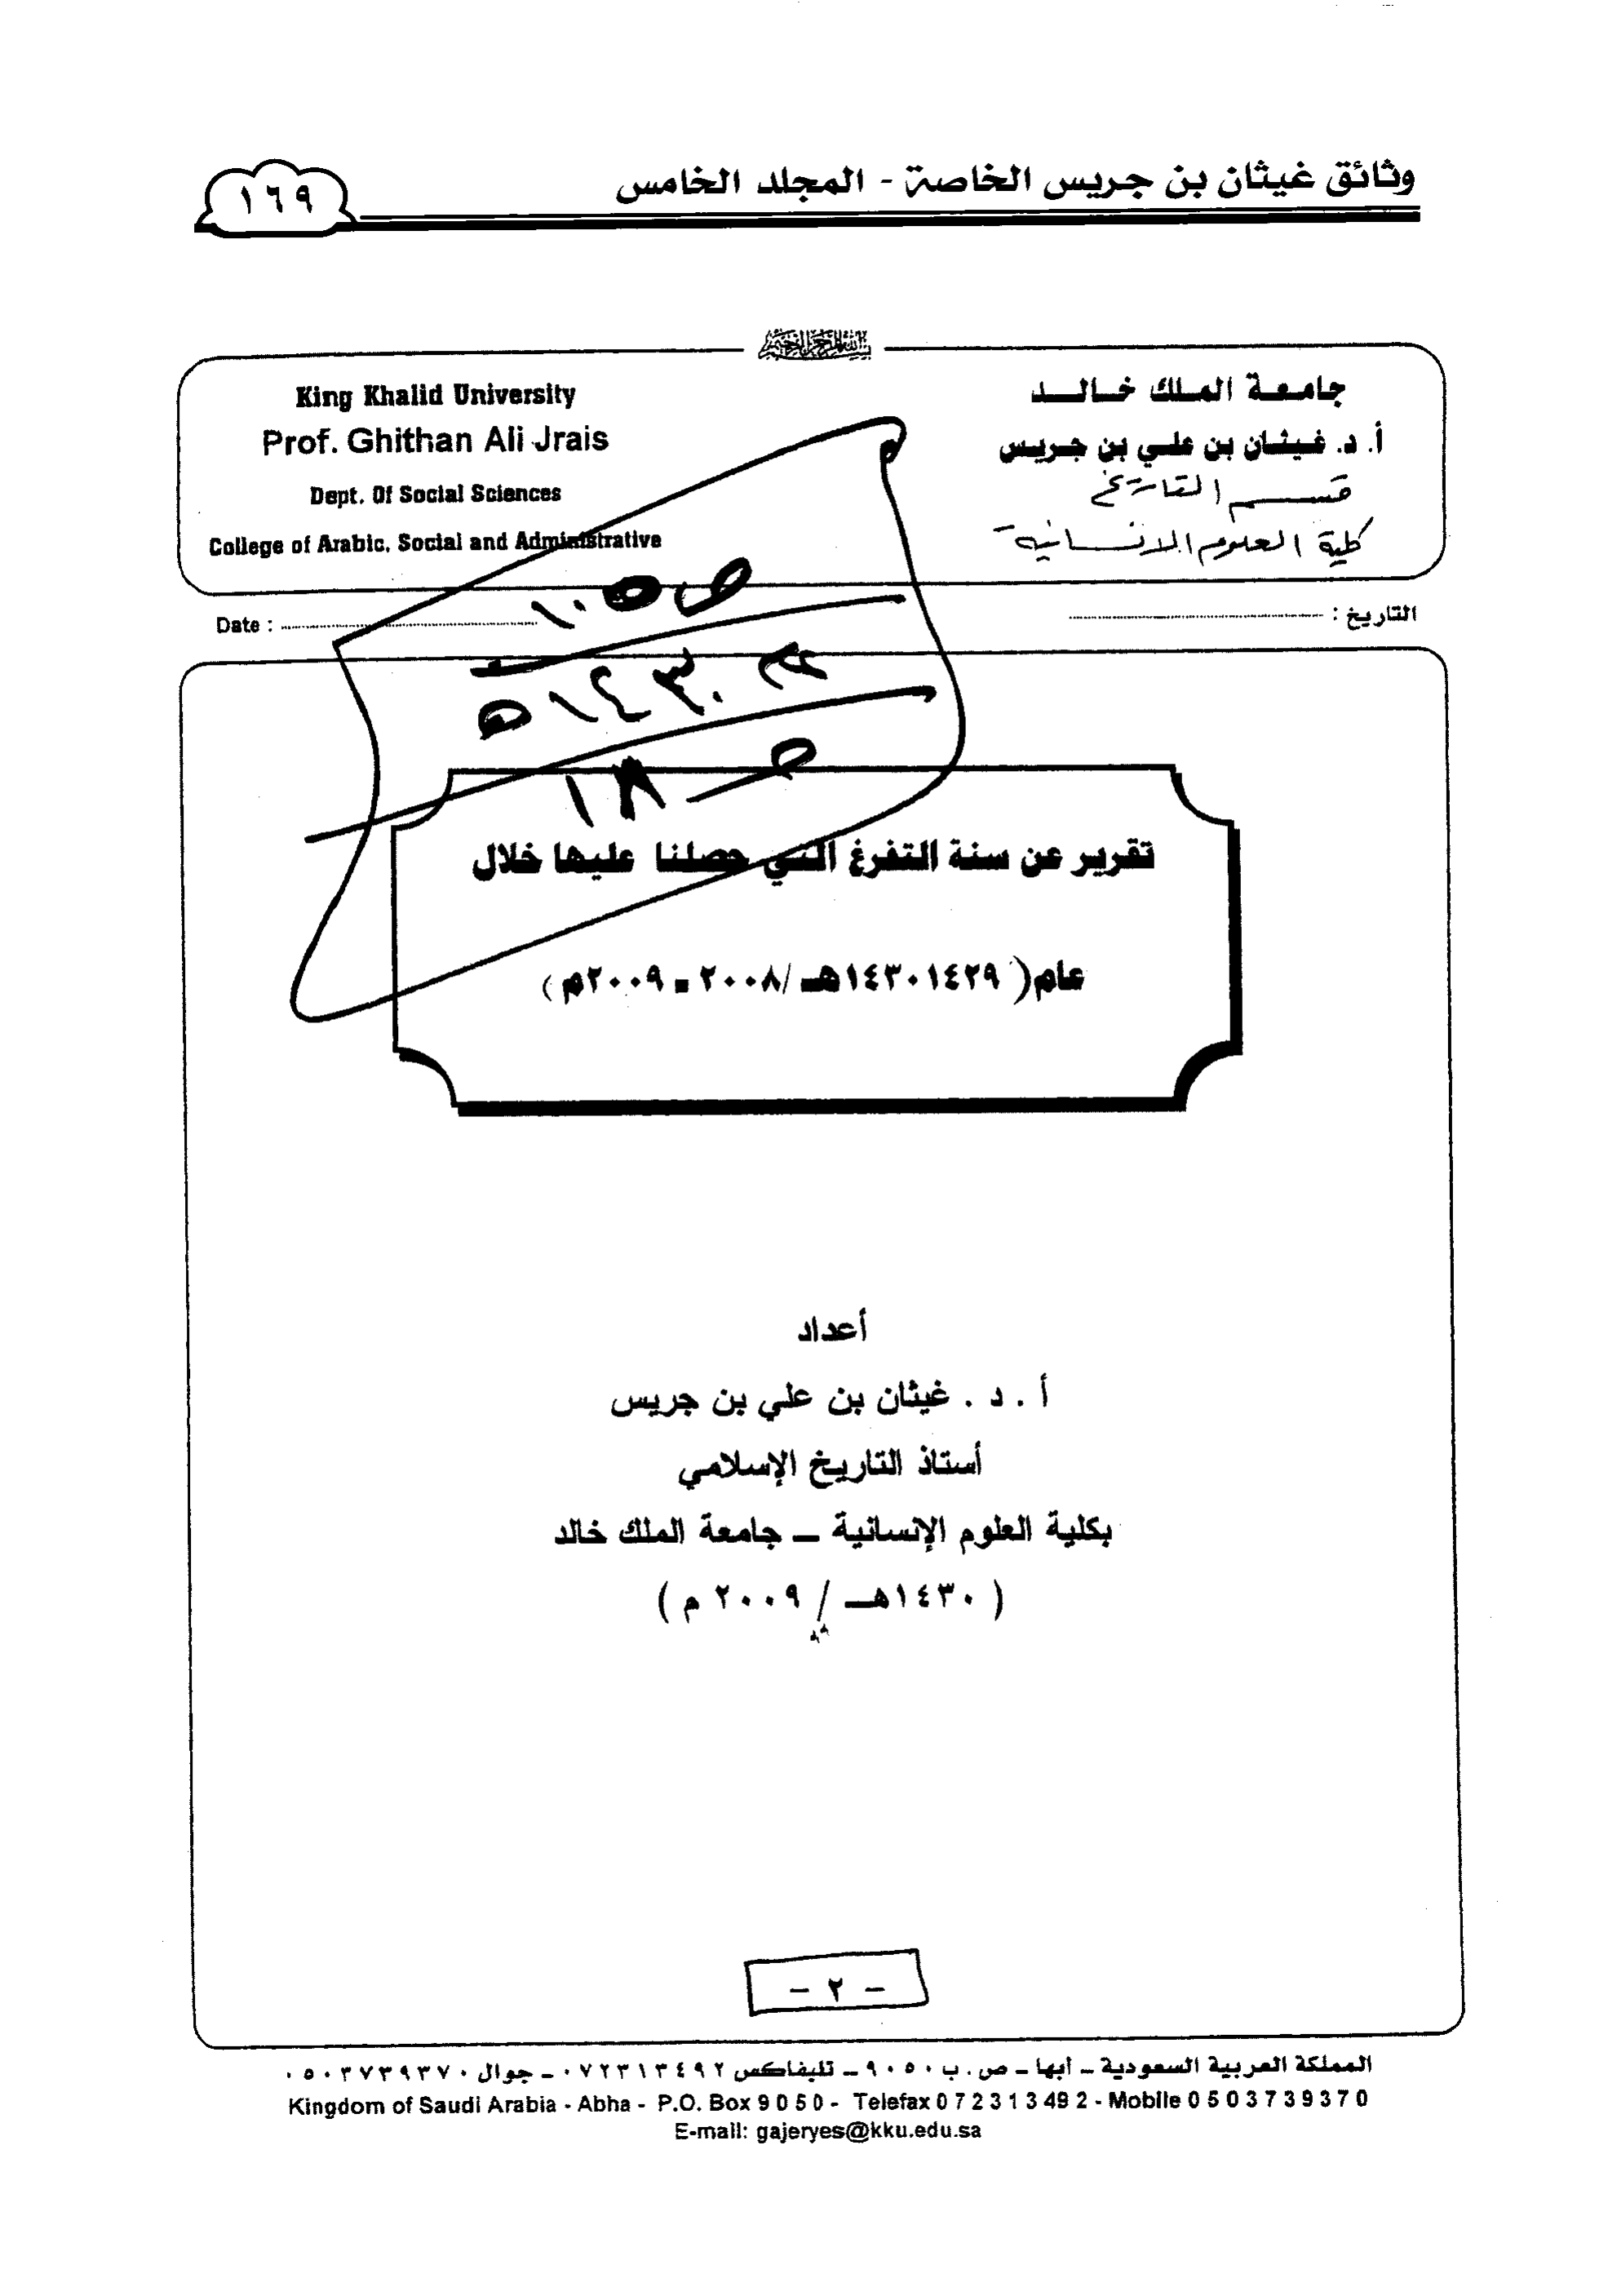 وثائق غيثان بن جريس الخاصة - المجلد الخامس
١٦٩
بسم الله الرحمن الرحيم
جامعة الملك خالد
أ. د. غيثان بن علي بن جريس
قسم التاريخ
كلية العلوم الانسانية
King Khalid University
Prof. Ghithan Ali Jrais
Dept. Of Social Sciences
College of Arabic, Social and Administrative
التاريخ :
Date :
ص ١٠٥
١٤٣٠هـ
١٨
تقرير عن سنة التفرغ التي حصلنا عليها خلال
عام( ١٤٣٠١٤٢٩هـ /٢٠٠٨ - ٢٠٠٩م)
أعداد
أ . د . غيثان بن علي بن جريس
أستاذ التاريخ الإسلامي
بكلية العلوم الإنسانية – جامعة الملك خالد
( ١٤٣٠هـ / ٢٠٠٩ م )
- ٢ -
المملكة العربية السعودية – أبها – ص . ب ٩٠٥٠ – تليفاكس ٠٧٢٣١٣٤٩٢ – جوال ٠٥٠٣٧٣٩٣٧٠
Kingdom of Saudi Arabia - Abha - P.O. Box 9 0 5 0 - Telefax 0 7 2 3 1 3 49 2 - Mobile 0 5 0 3 7 3 9 3 7 0
E-mail: gajeryes@kku.edu.sa